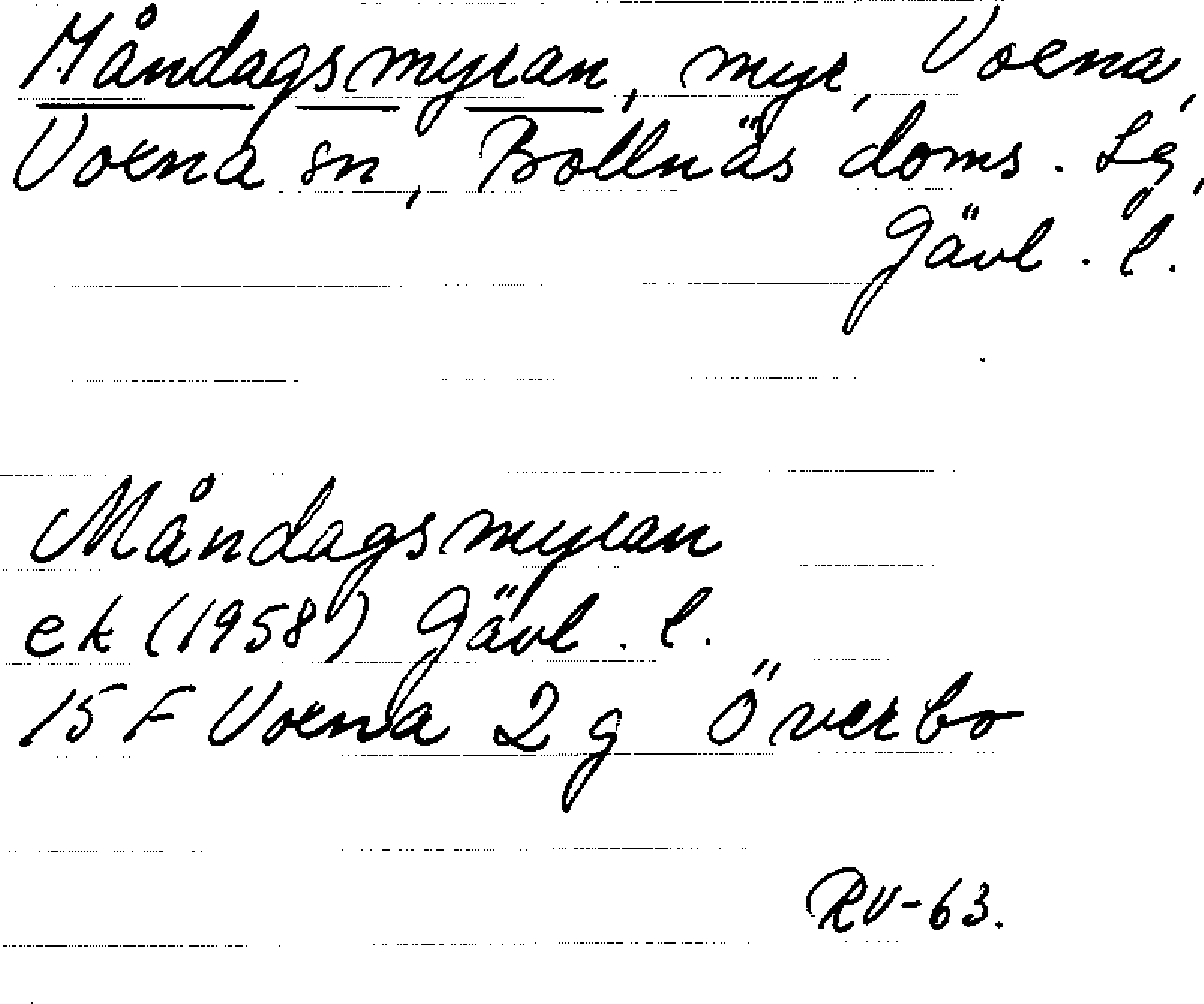 Måndagsmyran, myr, Voxna,
Voxna sn, Bollnäs doms. tg,
Gävl. l.
Måndagsmyran
ek (1958) Gävl. l.
15 F Voxna 2 g Överbo
RV-63.